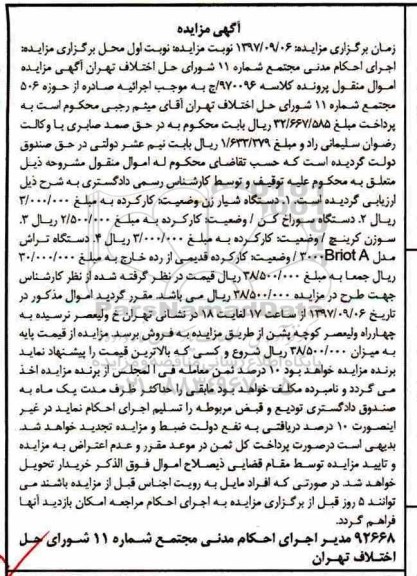 آگهی مزایده
زمان برگزاری مزایده: ۱۳۹۷/۰۹/۰۶ نوبت مزایده: نوبت اول محل برگزاری مزایده:
اجرای احکام مدنی مجتمع شماره ۱۱ شورای حل اختلاف تهران آگهی مزایده
اموال منقول پرونده کلاسه ۹۷۰۰۹۶/ج به موجب اجرائیه صادره از حوزه ۵۰۶
مجتمع شماره ۱۱ شورای حل اختلاف تهران آقای میثم رجبی محکوم است به
پرداخت مبلغ ۳۲/۶۶۷/۵۸۵ ریال بابت محکوم به در حق صمد صابری با وکالت
رضوان سلیمانی راد و مبلغ ۱/۶۳۳/۳۷۹ ریال بابت نیم عشر دولتی در حق صندوق
دولت گردیده است که حسب تقاضای محکوم له اموال منقول مشروحه ذیل
متعلق به محکوم علیه توقیف و توسط کارشناس رسمی دادگستری به شرح ذیل
ارزیابی گردیده است. ۱. دستگاه شیار زن وضعیت: کارکرده به مبلغ ۳/۰۰۰/۰۰۰
ریال ۲. دستگاه سوراخ کن / وضعیت: کارکرده به مبلغ ۲/۵۰۰/۰۰۰ ریال ۳.
سوزن کرینچ / وضعیت: کارکرده به مبلغ ۳/۰۰۰/۰۰۰ ریال ۴. دستگاه تراش
مدل Briot A۳۰۰۰/ وضعیت: کارکرده قدیمی از رده خارج به مبلغ ۳۰/۰۰۰/۰۰۰
ریال جمعا به مبلغ ۳۸/۵۰۰/۰۰۰ ریال قیمت در نظر گرفته شده از نظر کارشناس
جهت طرح در مزایده ۳۸/۵۰۰/۰۰۰ ریال می باشد. مقرر گردید اموال مذکور در
تاریخ ۱۳۹۷/۰۹/۰۶ از ساعت ۱۷ لغایت ۱۸ در نشانی تهران خ ولیعصر نرسیده به
چهارراه ولیعصر کوچه پشن از طریق مزایده به فروش برسد مزایده از قیمت پایه
به میزان ۳۸/۵۰۰/۰۰۰ ریال شروع و کسی که بالاترین قیمت را پیشنهاد نماید
برنده مزایده خواهد بود ۱۰ درصد ثمن معامله فی المجلس از برنده مزایده اخذ
می گردد و نامبرده مکلف خواهد بود مابقی را حداکثر ظرف مدت یک ماه به
صندوق دادگستری تودیع و قبض مربوطه را تسلیم اجرای احکام نماید در غیر
اینصورت ۱۰ درصد دریافتی به نفع دولت ضبط و مزایده تجدید خواهد شد.
بدیهی است درصورت پرداخت کل ثمن در موعد مقرر و عدم اعتراض به مزایده
و تایید مزایده توسط مقام قضایی ذیصلاح اموال فوق الذکر خریدار تحویل
خواهد شد. در صورتی که افراد مایل به رویت اجناس قبل از مزایده باشند می
توانند ۵ روز قبل از برگزاری مزایده به اجرای احکام مراجعه امکان بازدید آنها
فراهم گردد.
۹۲۶۶۸ مدیر اجرای احکام مدنی مجتمع شماره ۱۱ شورای حل
اختلاف تهران